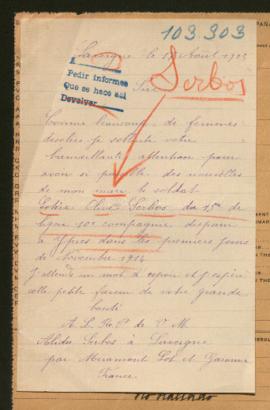 103 303
Lavergne le 1 Août 1915
Pedir informes
Que se hace así
Devolver
Sire
Serbos
Comme beaucoup de femmes
désolées je sollicite votre
bienveillante attention pour
avoir si possible des nouvelles
de mon mari le soldat
Serbos du 15me de
ligne 10e compagnie disparu
à Ypres dans les premiers jours
de Novembre 1914
J'attend un mot d'espoir et j'espère
cette petite faveur de votre grande
bonté
A. L. R. P. de V. M.
Serbos à Lavergne
par Miramont Lot et Garonne
France